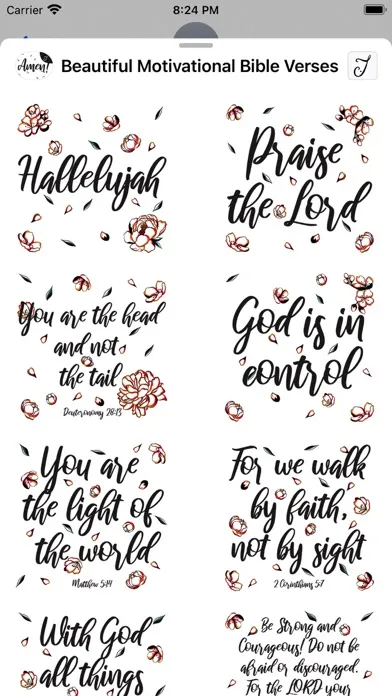 Carrier 8:24 PM
Amen!
Beautiful Motivational Bible Verses
J
Hallelujah
Praise
the Lord
You are the head
and not
the tail
Deuteronomy 28:13
God is in
control
You are
the light of
the world
Matthew 5:14
For we walk
by faith,
not by sight
2 Corinthians 5:7
With God
all things
Be Strong and
Courageous! Do not be
afraid or discouraged.
For the LORD your